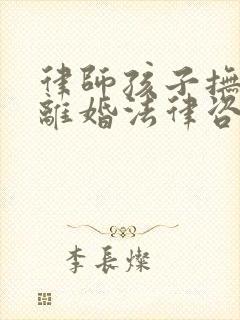 律師孩子撫
離婚法律咨
李長燦